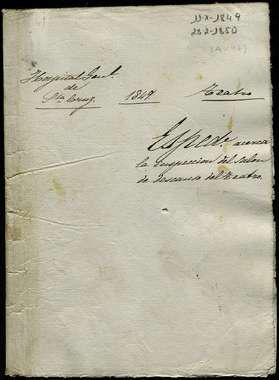 11-X-1849
28-2-1850
Hospital Genl.
de
Sta. Cruz.
1849
Teatro
Exped.te acerca
la Inspeccion del Salon
de descanso del Teatro.